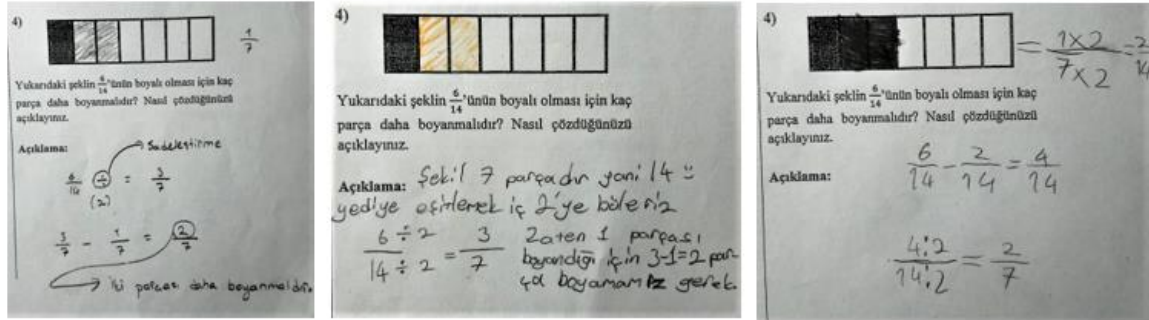 4)
1/7
Yukarıdaki şeklin 6/14'ünün boyalı olması için kaç
parça daha boyanmalıdır? Nasıl çözdüğünüzü
açıklayınız.
Açıklama:
Sadeleştirme
6/14 ÷ (2) = 3/7
3/7 - 1/7 = 2/7
İki parçası daha boyanmalıdır.
4)
Yukarıdaki şeklin 6/14'ünün boyalı olması için kaç
parça daha boyanmalıdır? Nasıl çözdüğünüzü
açıklayınız.
Açıklama: Şekil 7 parçadır yani 14'ü
yediye eşitlemek iç 2'ye böleriz
6 ÷ 2 / 14 ÷ 2 = 3/7
Zaten 1 parçası
boyandığı için 3-1=2 par-
ça boyamamız gerek.
4)
= 1x2 / 7x2 = 2/14
Yukarıdaki şeklin 6/14'ünün boyalı olması için kaç
parça daha boyanmalıdır? Nasıl çözdüğünüzü
açıklayınız.
6/14 - 2/14 = 4/14
Açıklama:
4:2 / 14:2 = 2/7